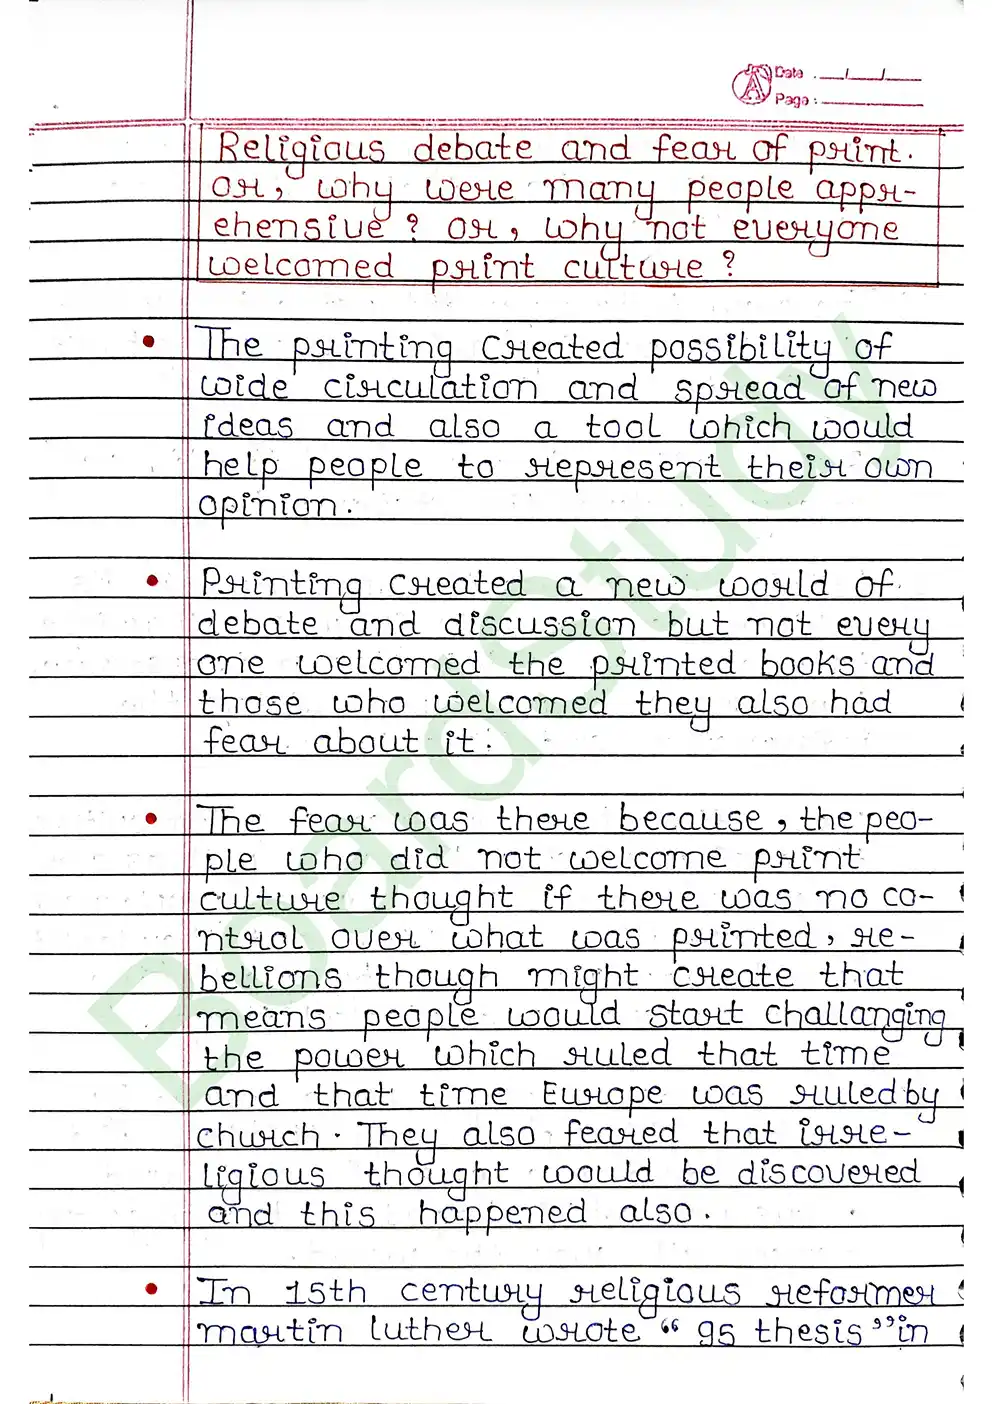 Date : __/__/__
Page :
Religious debate and fear of print.
or, why were many people appr-
ehensive ? or, why not everyone
welcomed print culture ?
• The printing created possibility of
wide circulation and spread of new
ideas and also a tool which would
help people to represent their own
opinion.
• Printing created a new world of
debate and discussion but not every
one welcomed the printed books and
those who welcomed they also had
fear about it.
• The fear was there because, the peo-
ple who did not welcome print
culture thought if there was no co-
ntrol over what was printed, re-
bellions though might create that
means people would start challanging
the power which ruled that time
and that time Europe was ruled by
church. They also feared that irre-
ligious thought would be discovered
and this happened also.
• In 15th century religious reformer
martin luther wrote “ 95 thesis ” in
BoardStudy